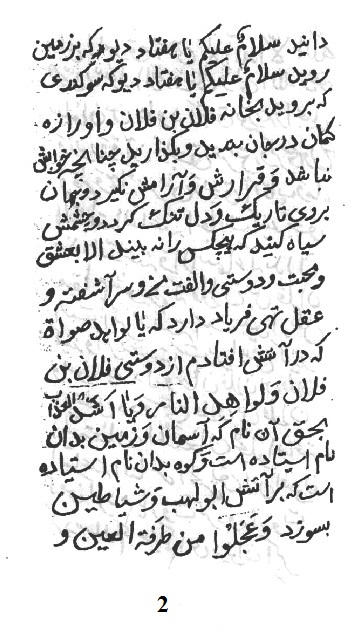 دانید سلامٌ علیکم یا هفتاد دیو که بر زمین
روید سلامٌ علیکم یا هفتاد دیو که سوکندی
که بروید بخانه فلان بن فلان و او را زه
کمان در دهان بندید و بگذارید چنانچه خوابش
نباشد و قرارش و آرامش نگیرد و جهان
بروی تاریک و دل تنگ کردد و چشمش
سیاه کنید که هیچکس را نه بیند الا بعشق
و محبت و دوستی و الفت من و سر آشفته و
عقل تهی فریاد دارد که یا
که در آتش افتادم از دوستی فلان بن
فلان و لواهل الناس و یا
بحق آن نام که آسمان و زمین بدان
نام ایستاده است و کوه بدان نام استیاده
است که بر آتش ابولهب و شیاطین
بسوزد و عَجّلُوا من طرفة العین و
2